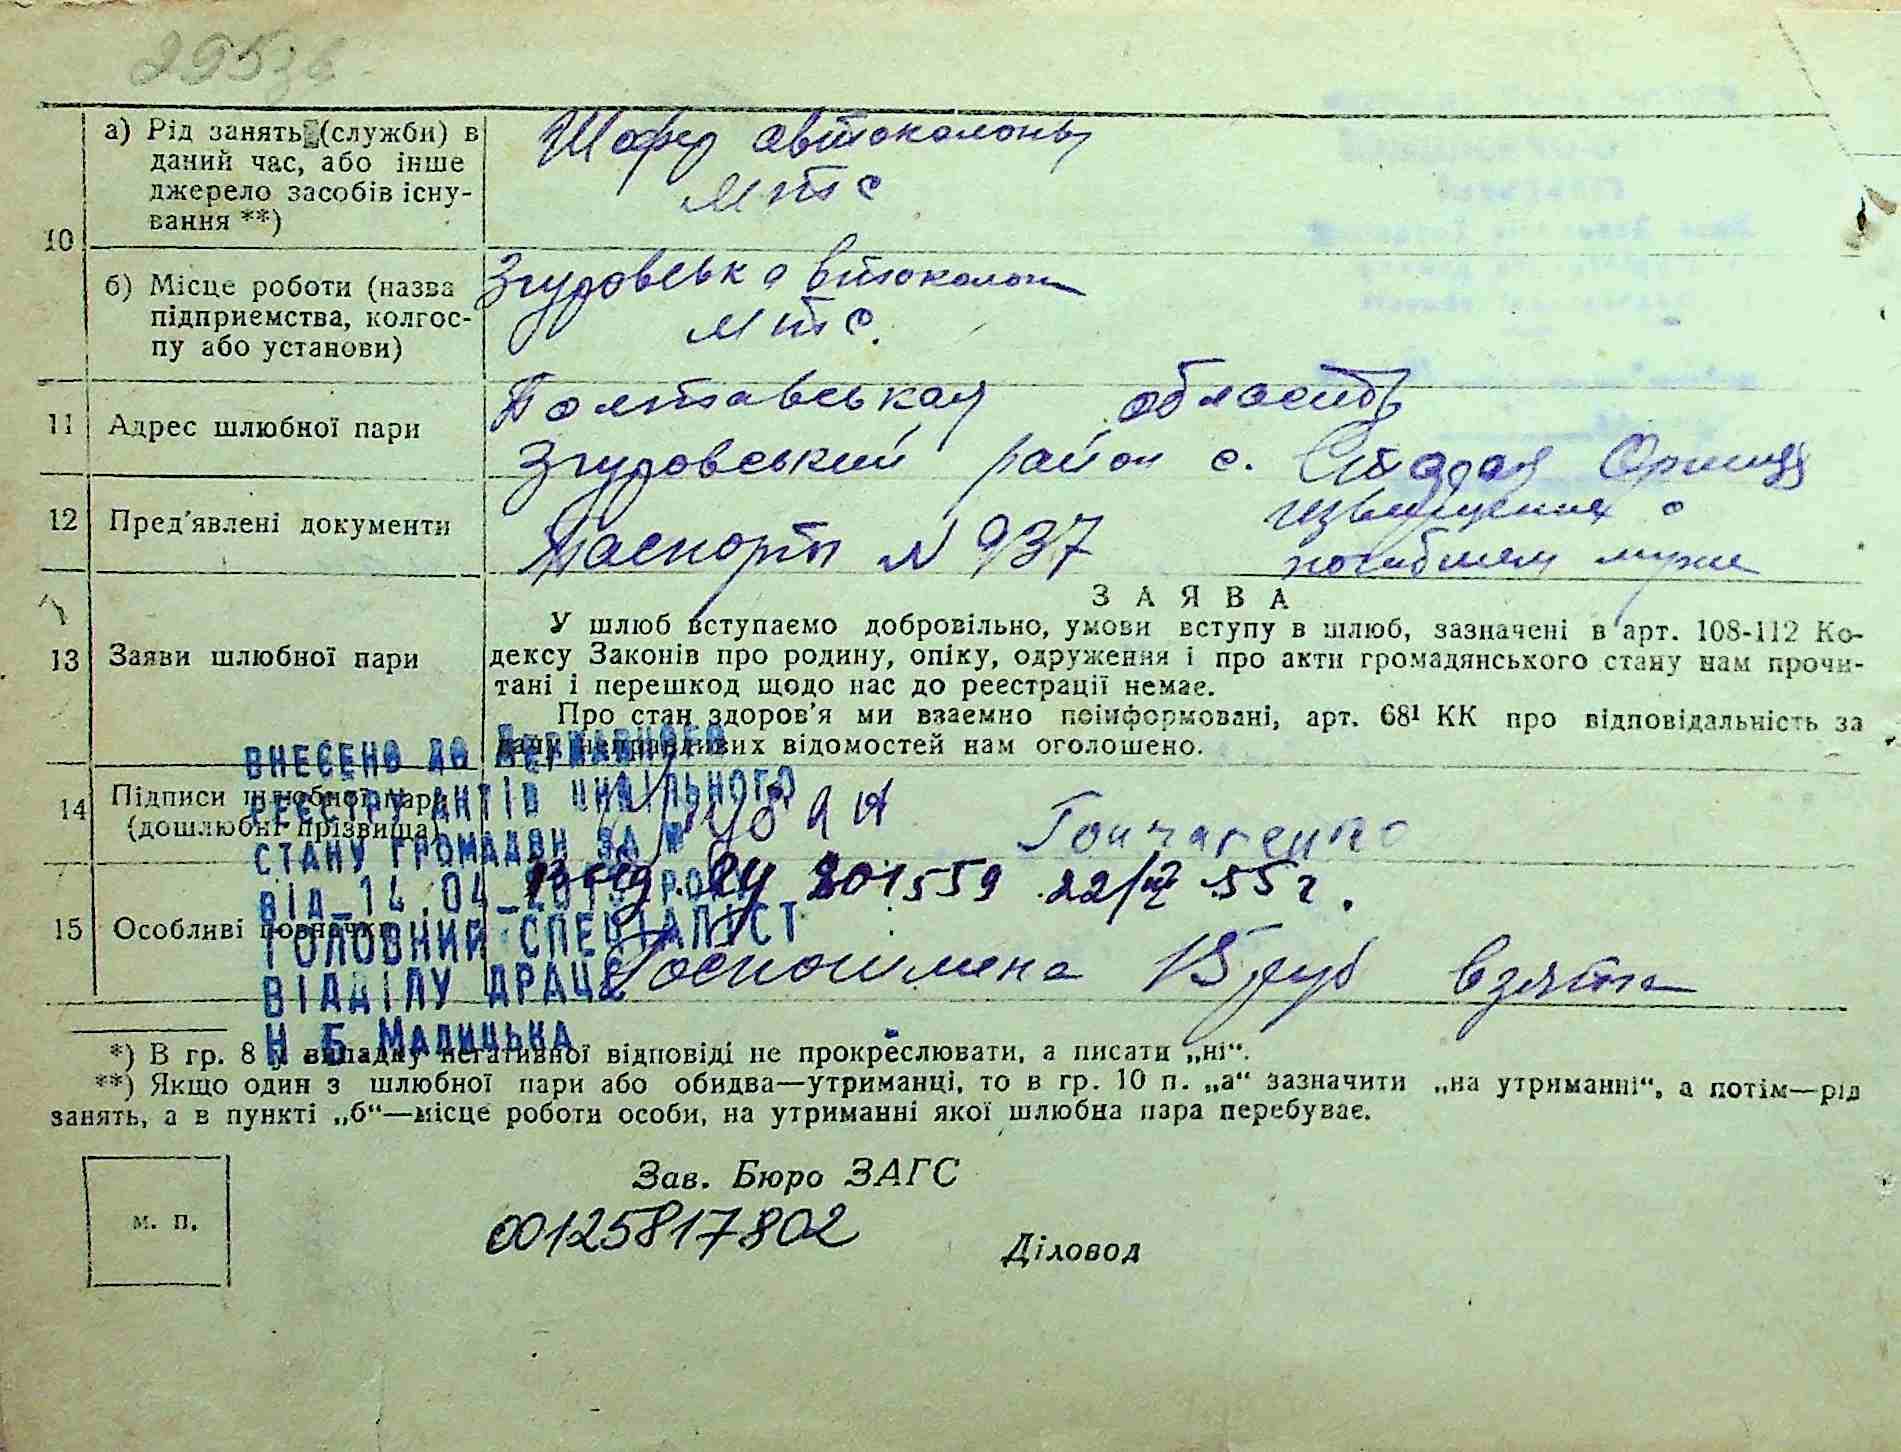 295зв
а) Рід занять (службы) в
даний час, або інше
джерело засобів існу-
вання **)
Шофер автоколоны
МТС
10
б) Місце роботи (назва
підприємства, колгос-
пу або установи)
Згуровськ автоколон
МТС.
11 Адрес шлюбної пари
Полтавськая область
Згуровський район с. Старая Оржица
12 Пред'явлені документи
Паспорт N 937
извещение о
погибшем муже
13 Заяви шлюбної пари
ЗАЯВА
У шлюб вступаємо добровільно, умови вступу в шлюб, зазначені в арт. 108-112 Ко-
дексу Законів про родину, опіку, одруження і про акти громадянського стану нам прочи-
тані і перешкод щодо нас до реєстрації немає.
Про стан здоров'я ми взаємно поінформовані, арт. 68¹ КК про відповідальність за
дачу неправдивих відомостей нам оголошено.
14 Підписи шлюбної пари
(дошлюбні прізвища)
Гончаренко
201559 22/ 55 г.
15 Особливі позначки
Госпошлина 15 руб взята
ВНЕСЕНО ДО ДЕРЖАВНОГО
РЕЄСТРУ АКТІВ ЦИВІЛЬНОГО
СТАНУ ГРОМАДЯН ЗА №
ВІД 14.04
ГОЛОВНИЙ СПЕЦІАЛІСТ
ВІДДІЛУ ДРАЦС
Н Б МАЛИЦЬКА
*) В гр. 8 у випадку негативної відповіді не прокреслювати, а писати „ні“.
**) Якщо один з шлюбної пари або обидва—утриманці, то в гр. 10 п. „а“ зазначити „на утриманні“, а потім—рід
занять, а в пункті „б“—місце роботи особи, на утриманні якої шлюбна пара перебуває.
Зав. Бюро ЗАГС
00125817802
м. п.
Діловод